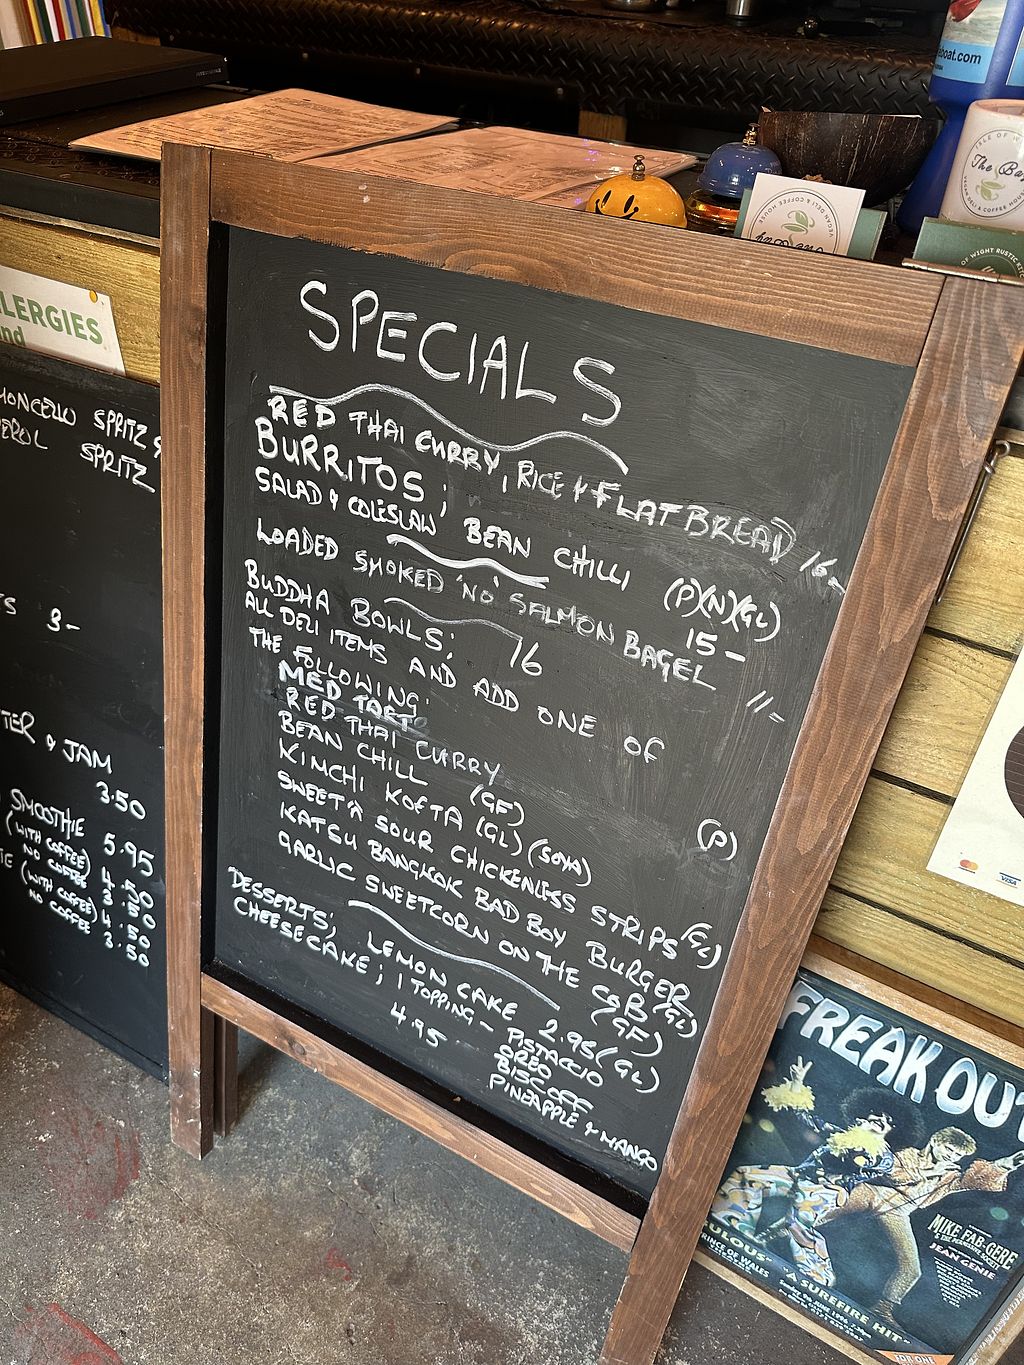 SPECIALS
RED THAI CURRY, RICE & FLATBREAD 16-
BURRITOS; BEAN CHILLI (P)(N)(GL)
SALAD & COLESLAW 15-
LOADED SMOKED 'NO' SALMON BAGEL 11-
BUDDHA BOWLS; 16
ALL DELI ITEMS AND ADD ONE OF
THE FOLLOWING:
MED TART
RED THAI CURRY (P)
BEAN CHILL (GF)
KIMCHI KOFTA (GL) (SOYA)
SWEET N SOUR CHICKENLESS STRIPS (GL)
KATSU BANGKOK BAD BOY BURGER (GL)
GARLIC SWEETCORN ON THE COB (GF)
DESSERTS; LEMON CAKE 2.95 (GL)
CHEESECAKE; 1 TOPPING - PISTACCIO
4.95 OREO
BISCOFF
PINEAPPLE & MANGO
LERGIES
nd
MONCELLO SPRITZ &
EROL SPRITZ
TS 3-
TER & JAM
3.50
SMOOTHIE 5.95
(WITH COFFEE) 4.50
NO COFFEE 3.50
(WITH COFFEE) 4.50
NO COFFEE 3.50
eboat.com
VEGAN DELI & COFFEE HOUSE
ISLE OF W
The Bay
VEGAN DELI & COFFEE HOUSE
OF WIGHT RUSTIC
VISA
FREAK OUT
MIKE FAB-GERE
JEAN GENIE
ULOUS
PRINCE OF WALES
A SUREFIRE HIT